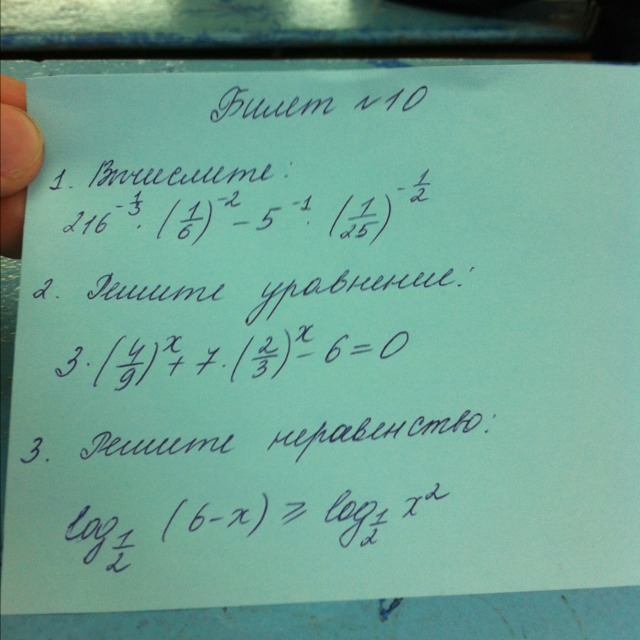 Билет N10
1. Вычислите:
216^{-\frac{1}{3}} · (\frac{1}{6})^{-2} - 5^{-1} · (\frac{1}{25})^{-\frac{1}{2}}
2. Решите уравнение:
3 · (\frac{4}{9})^x + 7 · (\frac{2}{3})^x - 6 = 0
3. Решите неравенство:
log_{\frac{1}{2}} (6-x) ≥ log_{\frac{1}{2}} x^2